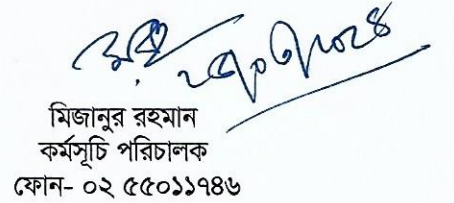 মিজানুর রহমান
কর্মসূচি পরিচালক
ফোন- ০২ ৫৫০১১৭৪৬